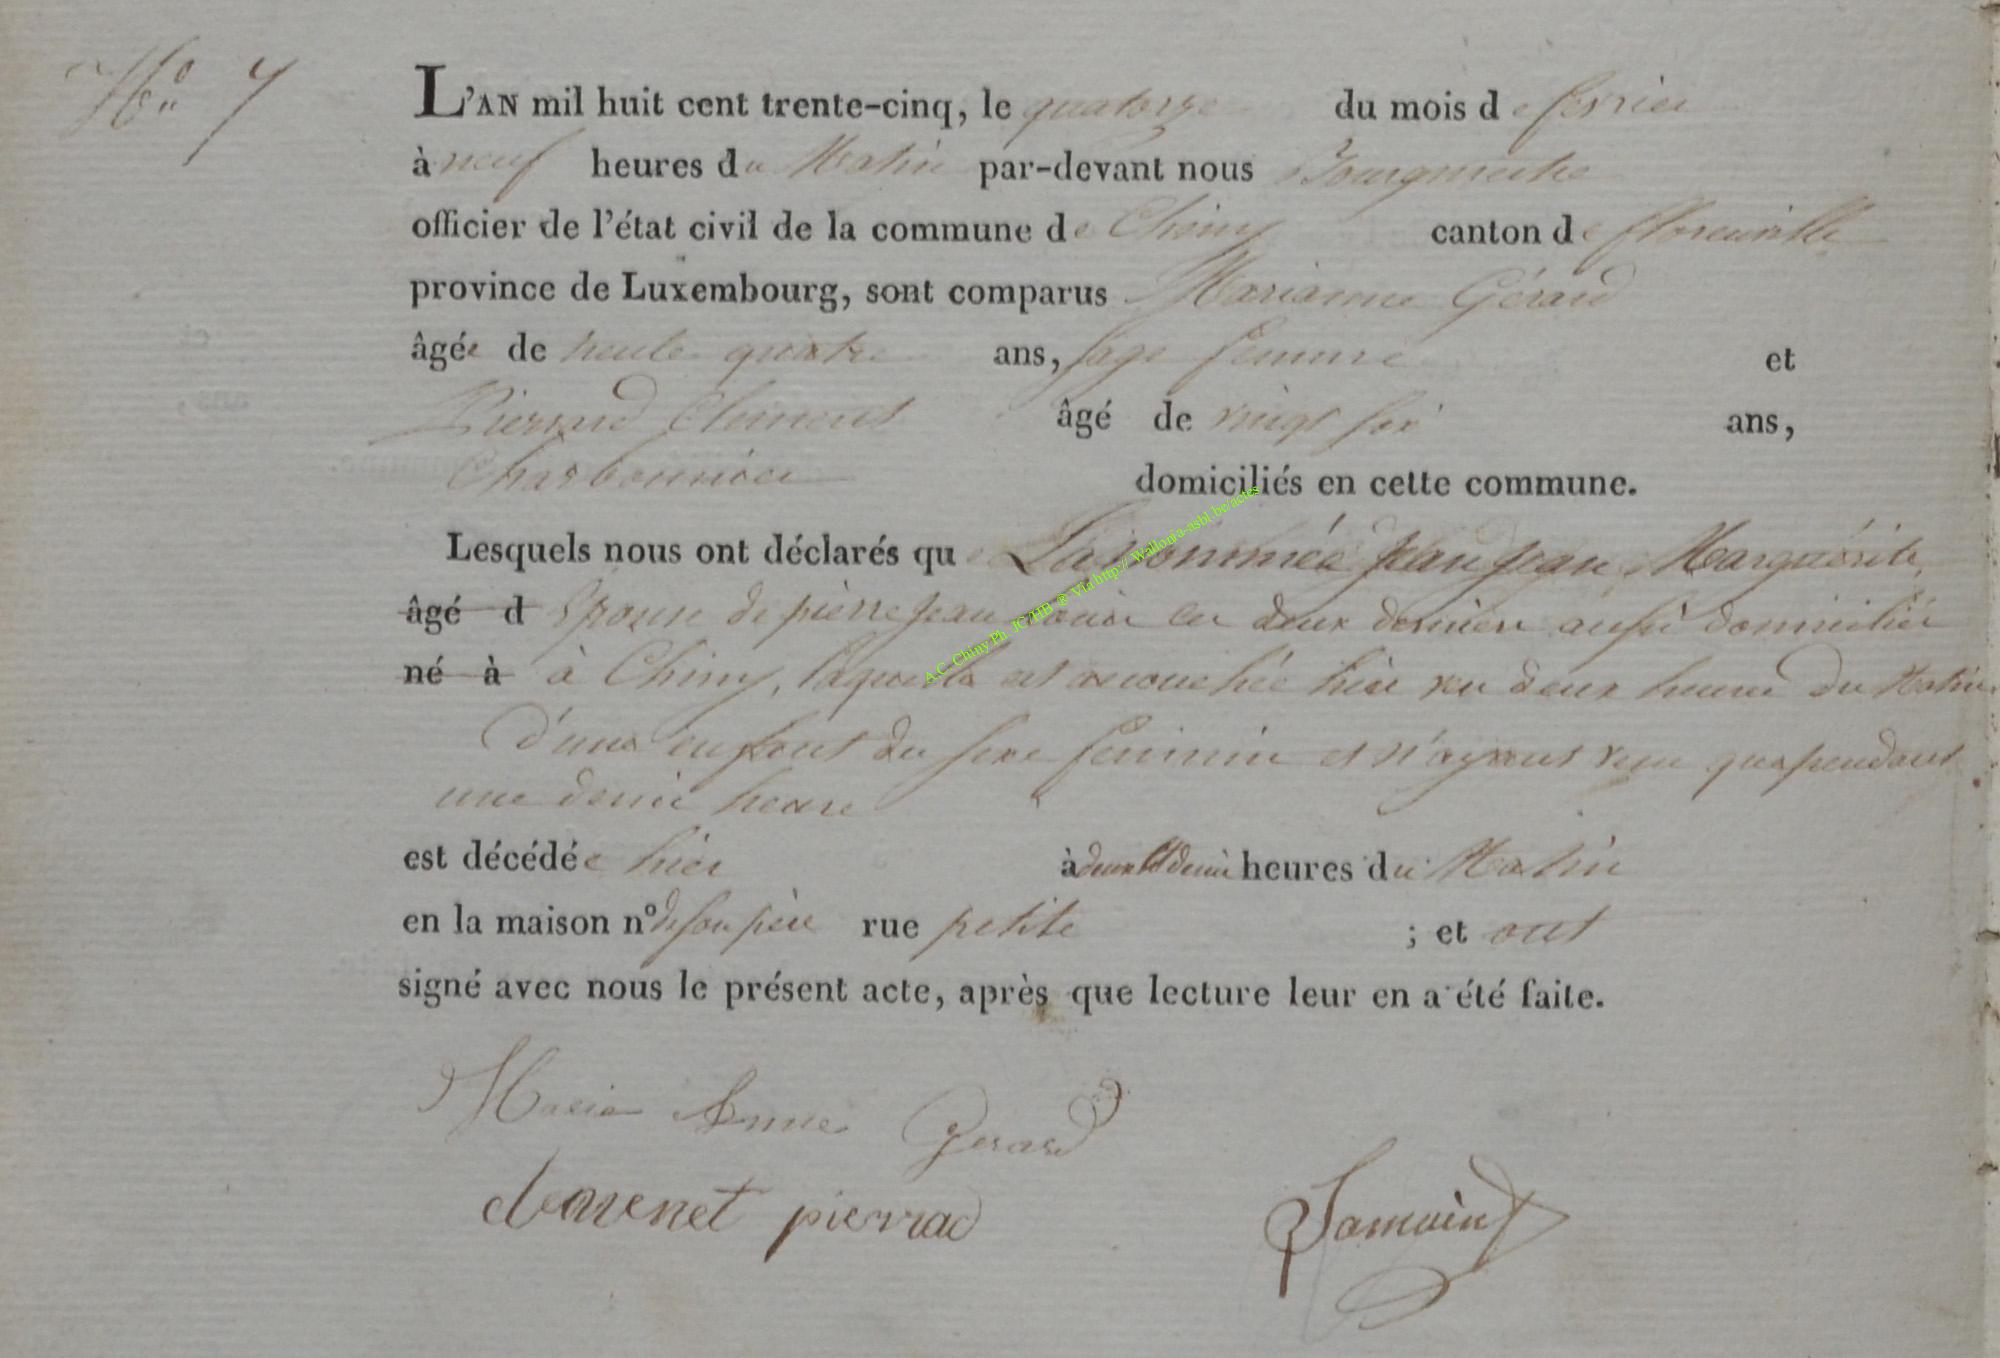 No 7
L'AN mil huit cent trente-cinq, le quatorze du mois de fevrier
à neuf heures du Matin par-devant nous Bourgmestre
officier de l'état civil de la commune de Chiny canton de florenville
province de Luxembourg, sont comparus Marianne Gérard
âgée de trente quatre ans, sage femme et
Pierrard Clement âgé de vingt six ans,
Charbonnier domiciliés en cette commune.
Lesquels nous ont déclarés que La nommée Jean Jean Marguérite
âgé d Epouse de pierre Jean ces deux derniers aussi domiciliés
né à à Chiny, laquelle est accouchée hier vu deux heures du Matin
d'une enfant du sexe féminin et n'ayant vecu que pendant
une demie heure
est décédée hier à deux et demie heures du Matin
en la maison no de son père rue petite ; et ont
signé avec nous le présent acte, après que lecture leur en a été faite.
Maria Anne Gerard
pierrad
A.C. Chiny Ph JC/HB ® Via http:// Wallonia-asbl.be/actes